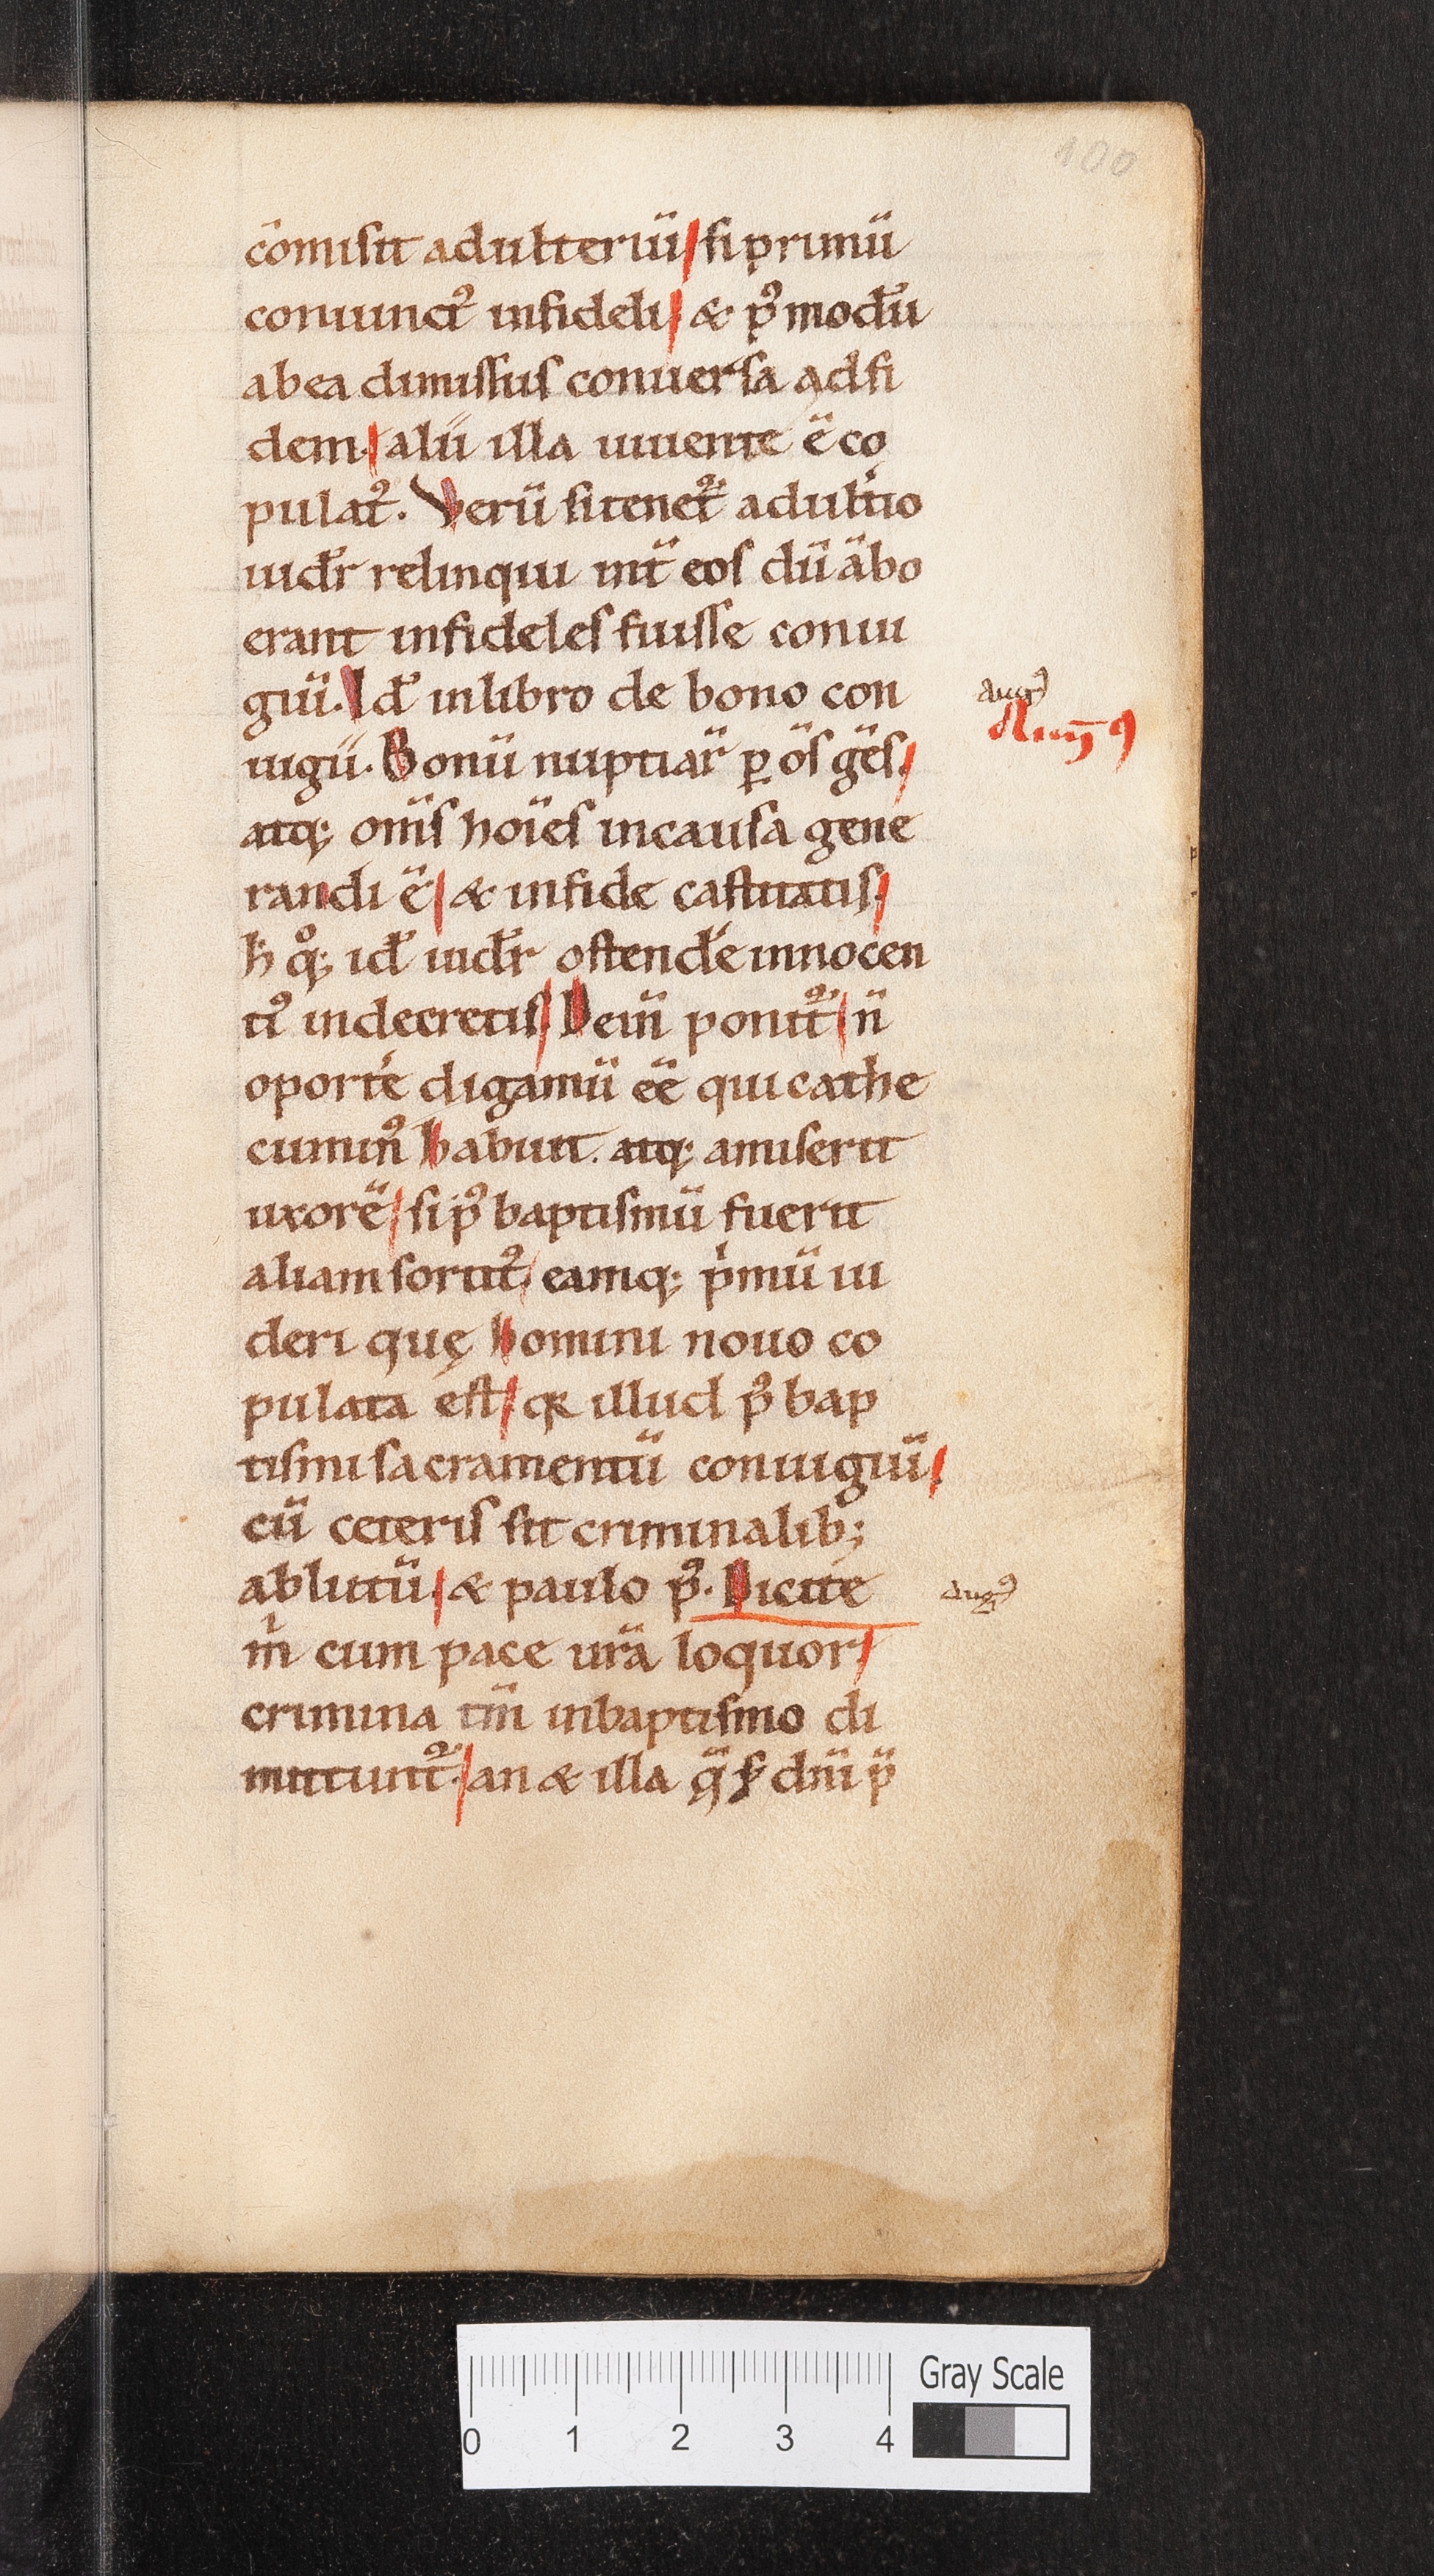 100
cōmisit adulteriū / si primū
coniunctꝰ infideli / & pꝰmodū
ab ea dimissus conuersa adfi
dem. / alii illa uiuente ē co
pulatꝰ. Verū si tenet᷒ adult̓io
uidr̄ relinqui int̄ eos dū ābo
erant infideles fuisse coniu
giū. Id̄ in libro de bono con
iugii. Bonū nuptiaꝝ̄ ꝑ ōs gēs /
atq; om̄s hōies in causa gene
randi ē / & in fide castitatis /
h̓ q̊; id̄ uidr̄ ostend̓e innocen
tiꝰ in decretis / Dein̄ ponit᷒ / n̄
oport̓e digamū eē qui cathe
cuminꝰ habuit. atq; amiserit
uxorē / si pꝰ baptismū fuerit
aliam sortitꝰ / eamq; p̓mū ui
deri quę homini nouo co
pulata est / qꝛ illud pꝰ bap
tismi sacramentū coniugiū /
cū ceteris sit criminalib;
ablutū. / & paulo pꝰ. Dicite
m̓ cum pace ur̄a loquor /
crimina tm̄ in baptismo di
mittunt᷒. / an & illa q̄ sꝫ dn̄i p̄
augꝰ
Augꝰ